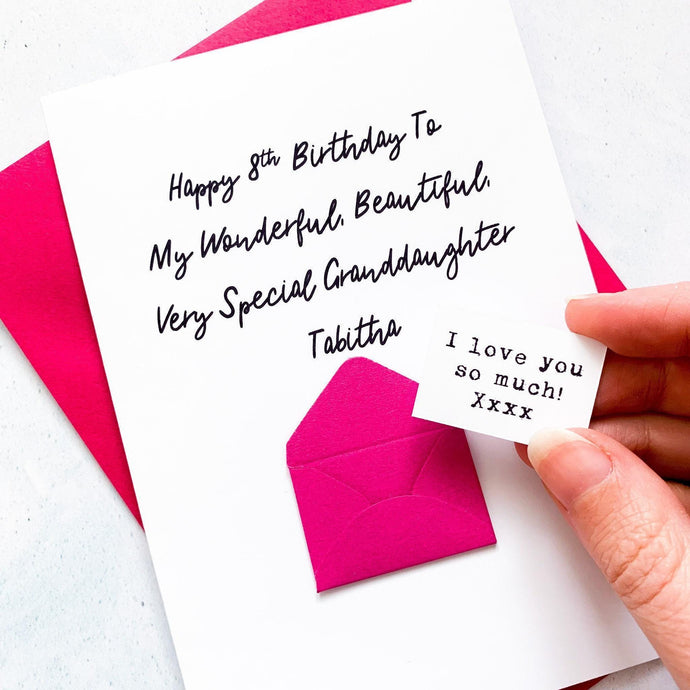 Happy 8th Birthday To
My Wonderful, Beautiful,
Very Special Granddaughter
Tabitha
I love you
so much!
Xxxx